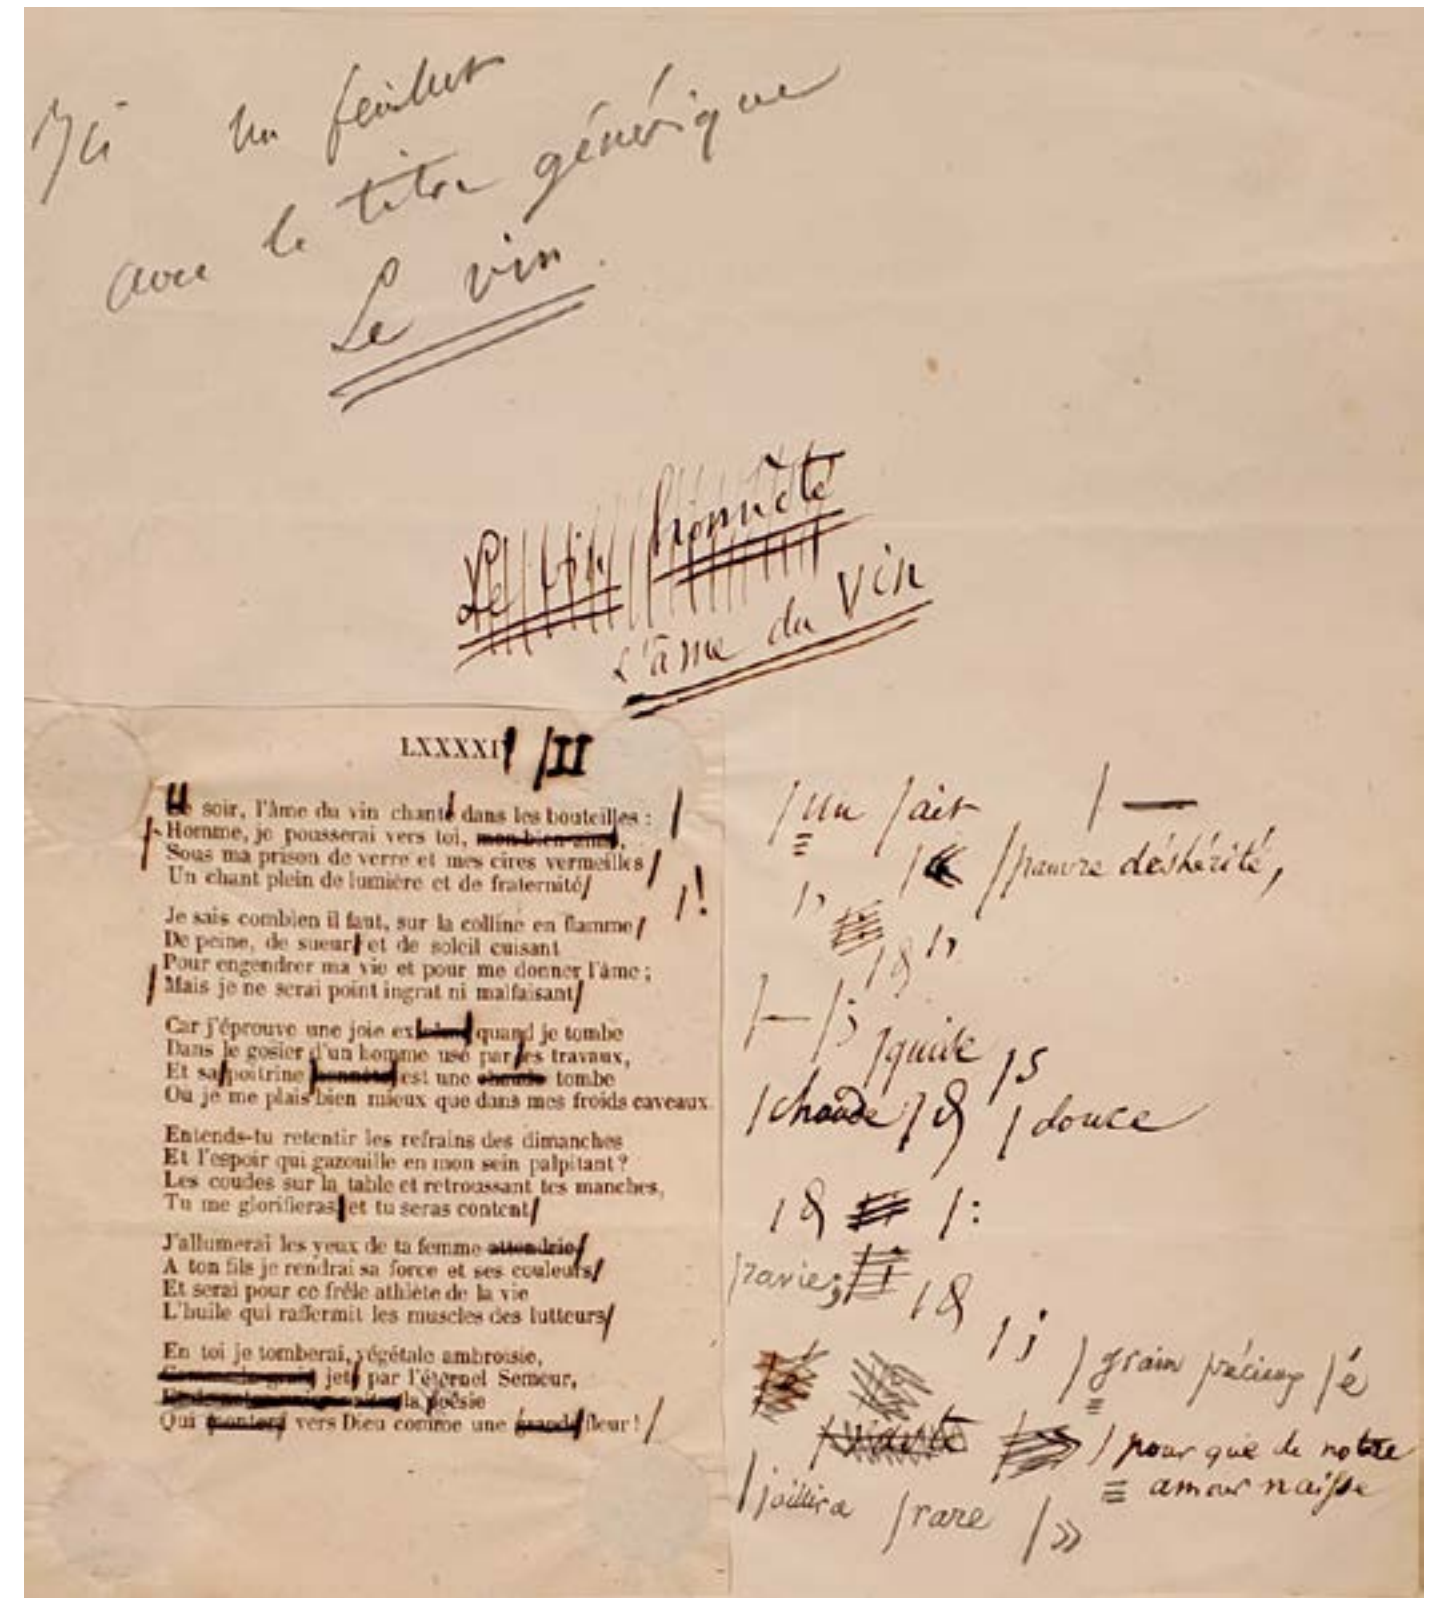 Ici un feuillet
avec le titre générique
Le vin.
Le vin honnête
L'âme du vin
LXXXXI /II
soir, l'âme du vin chant dans les bouteilles :
Homme, je pousserai vers toi, mon bien-aimé,
Sous ma prison de verre et mes cires vermeilles
Un chant plein de lumière et de fraternité
Je sais combien il faut, sur la colline en flamme
De peine, de sueur et de soleil cuisant
Pour engendrer ma vie et pour me donner l'âme ;
Mais je ne serai point ingrat ni malfaisant
Car j'éprouve une joie ex quand je tombe
Dans le gosier d'un homme usé par es travaux,
Et sa poitrine honnête est une chaude tombe
Où je me plais bien mieux que dans mes froids caveaux.
Entends-tu retentir les refrains des dimanches
Et l'espoir qui gazouille en mon sein palpitant ?
Les coudes sur la table et retroussant tes manches,
Tu me glorifieras et tu seras content
J'allumerai les yeux de ta femme attendrie
A ton fils je rendrai sa force et ses couleurs
Et serai pour ce frêle athlète de la vie
L'huile qui raffermit les muscles des lutteurs
En toi je tomberai, végétale ambroisie,
Comme le grain jet par l'éternel Semeur,
la poësie
Qui montera vers Dieu comme une grande fleur !
/un /ait /—
/pauvre déshérité,
/, /!
/&  /,
/— /; /quise /s
/chaude /& /douce
/& /:
/ravie; /&
/; /grain précieux /é
/pour que de notre
amour naisse
/jaillira /rare /»